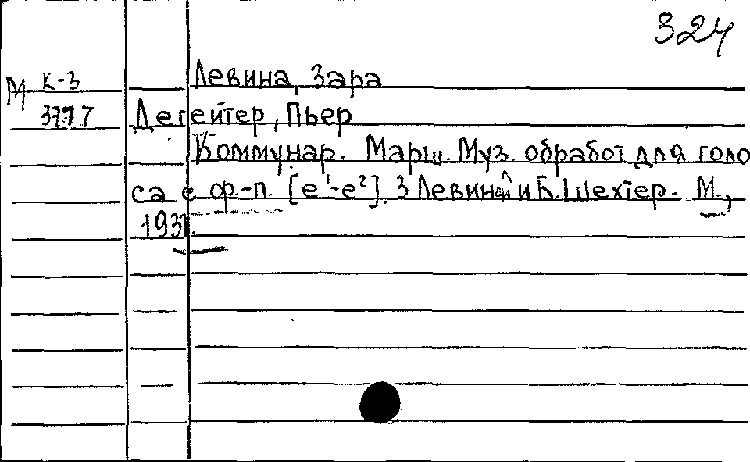 324
Левина, Зара
М К-3
3777 Дегейтер, Пьер
Коммунар. Марш. Муз. обработ. для голо
са с ф.-п. [e¹-e²]. З Левиной и Б. Шехтер. М.,
1931.